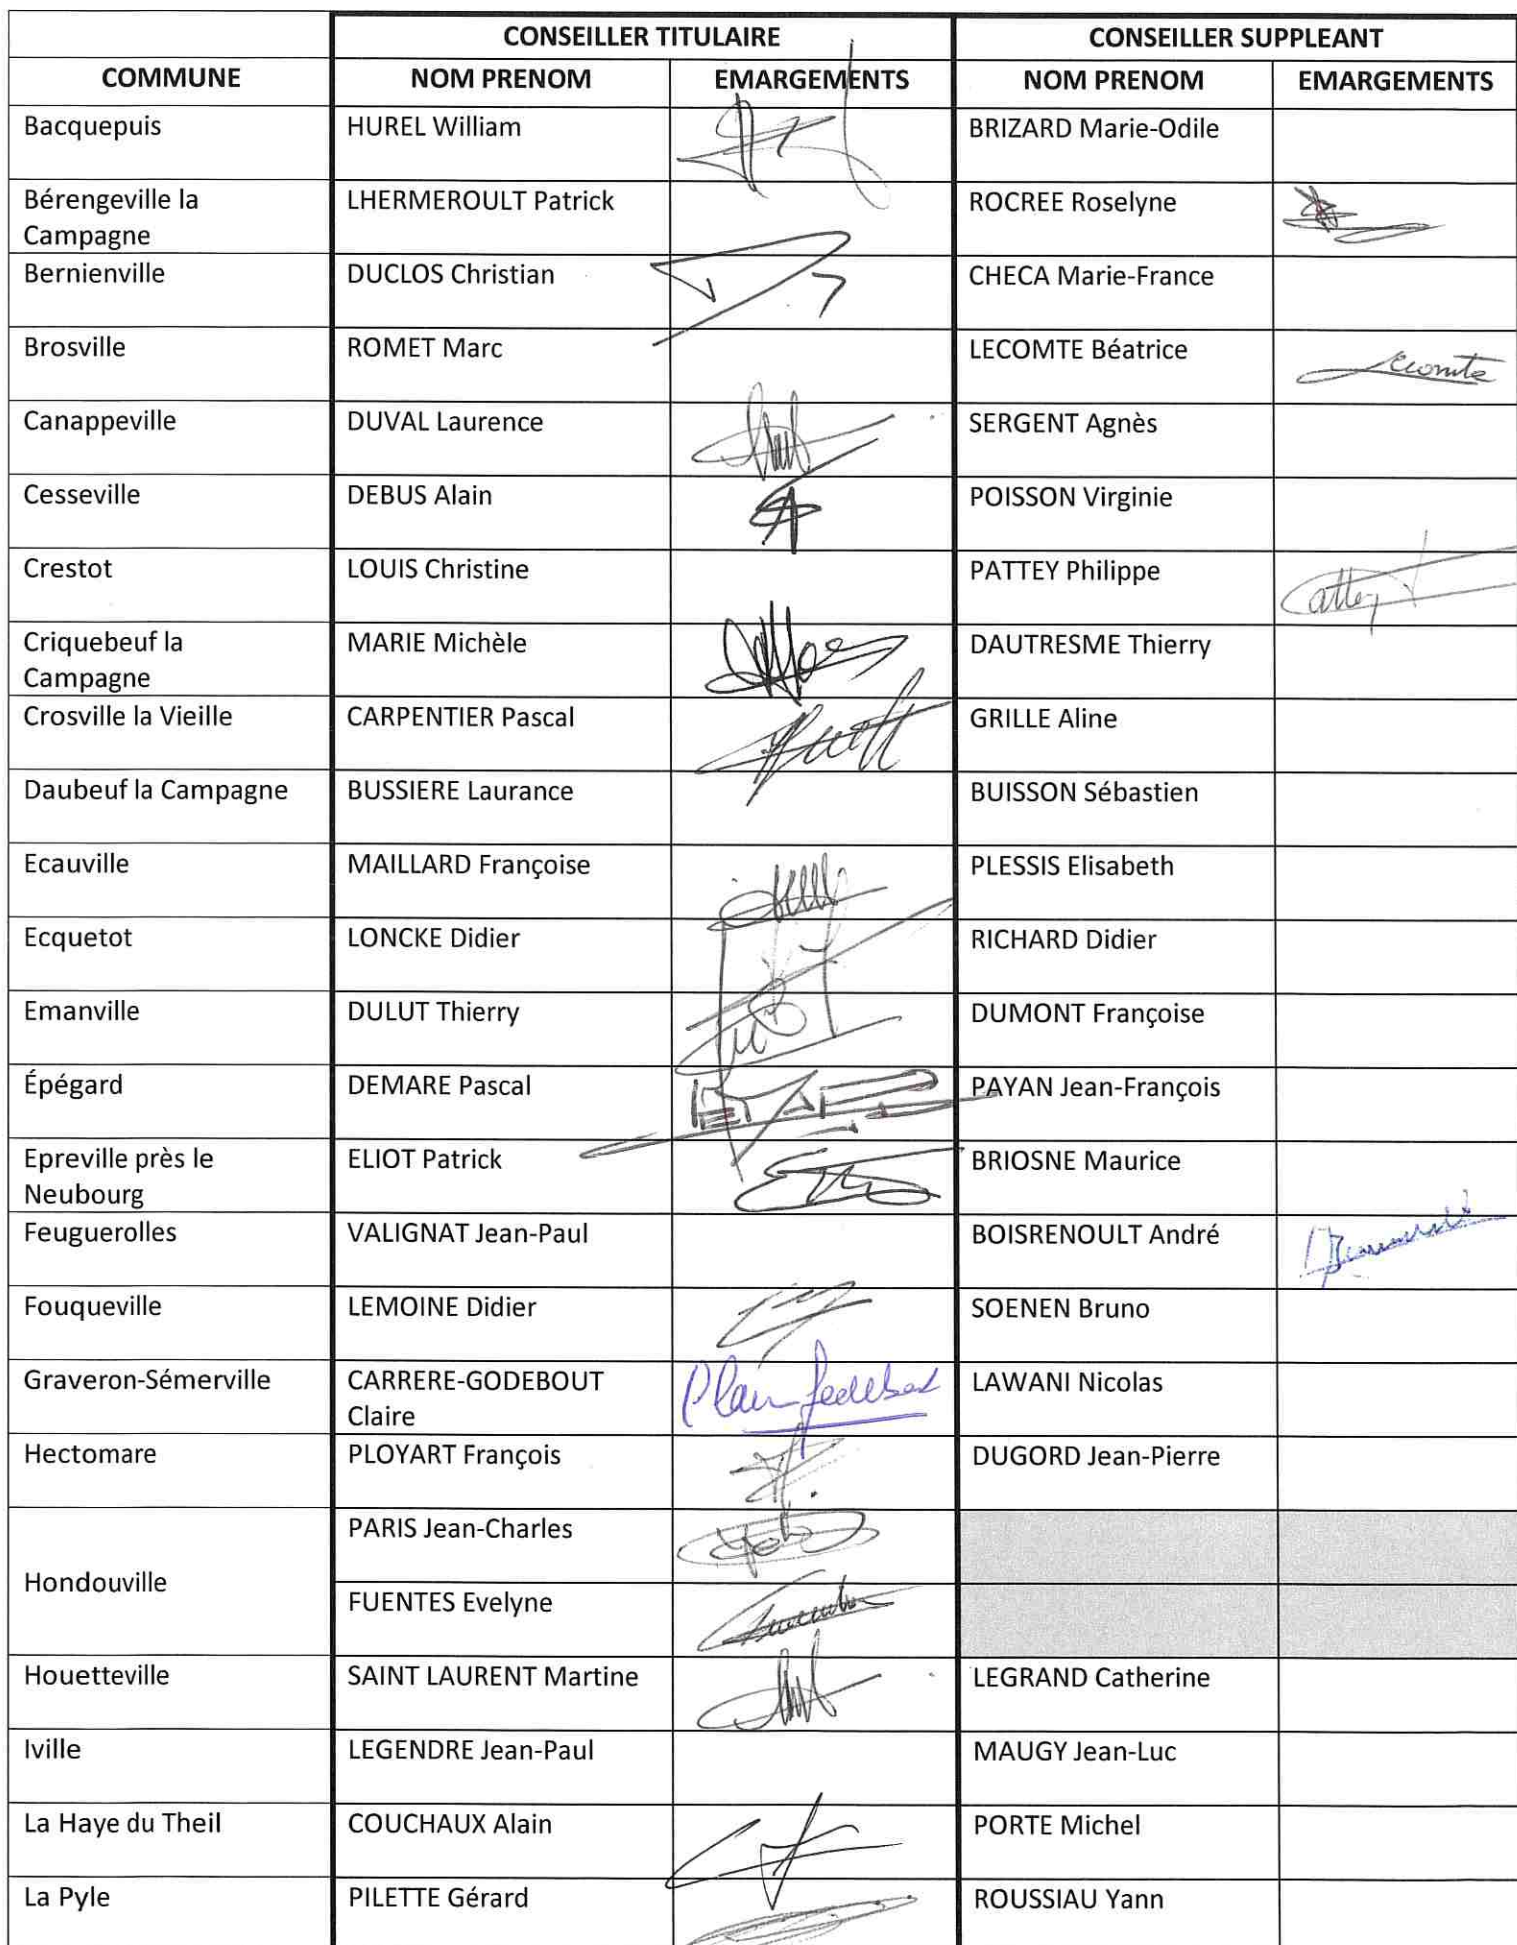 CONSEILLER TITULAIRE CONSEILLER SUPPLEANT
COMMUNE NOM PRENOM EMARGEMENTS NOM PRENOM EMARGEMENTS
Bacquepuis HUREL William BRIZARD Marie-Odile
Bérengeville la LHERMEROULT Patrick ROCREE Roselyne
Campagne
Bernienville DUCLOS Christian CHECA Marie-France
Brosville ROMET Marc LECOMTE Béatrice Lecomte
Canappeville DUVAL Laurence SERGENT Agnès
Cesseville DEBUS Alain POISSON Virginie
Crestot LOUIS Christine PATTEY Philippe
Criquebeuf la MARIE Michèle DAUTRESME Thierry
Campagne
Crosville la Vieille CARPENTIER Pascal GRILLE Aline
Daubeuf la Campagne BUSSIERE Laurance BUISSON Sébastien
Ecauville MAILLARD Françoise PLESSIS Elisabeth
Ecquetot LONCKE Didier RICHARD Didier
Emanville DULUT Thierry DUMONT Françoise
Épégard DEMARE Pascal PAYAN Jean-François
Epreville près le ELIOT Patrick BRIOSNE Maurice
Neubourg
Feuguerolles VALIGNAT Jean-Paul BOISRENOULT André
Fouqueville LEMOINE Didier SOENEN Bruno
Graveron-Sémerville CARRERE-GODEBOUT LAWANI Nicolas
Claire
Hectomare PLOYART François DUGORD Jean-Pierre
PARIS Jean-Charles
Hondouville
FUENTES Evelyne
Houetteville SAINT LAURENT Martine LEGRAND Catherine
Iville LEGENDRE Jean-Paul MAUGY Jean-Luc
La Haye du Theil COUCHAUX Alain PORTE Michel
La Pyle PILETTE Gérard ROUSSIAU Yann